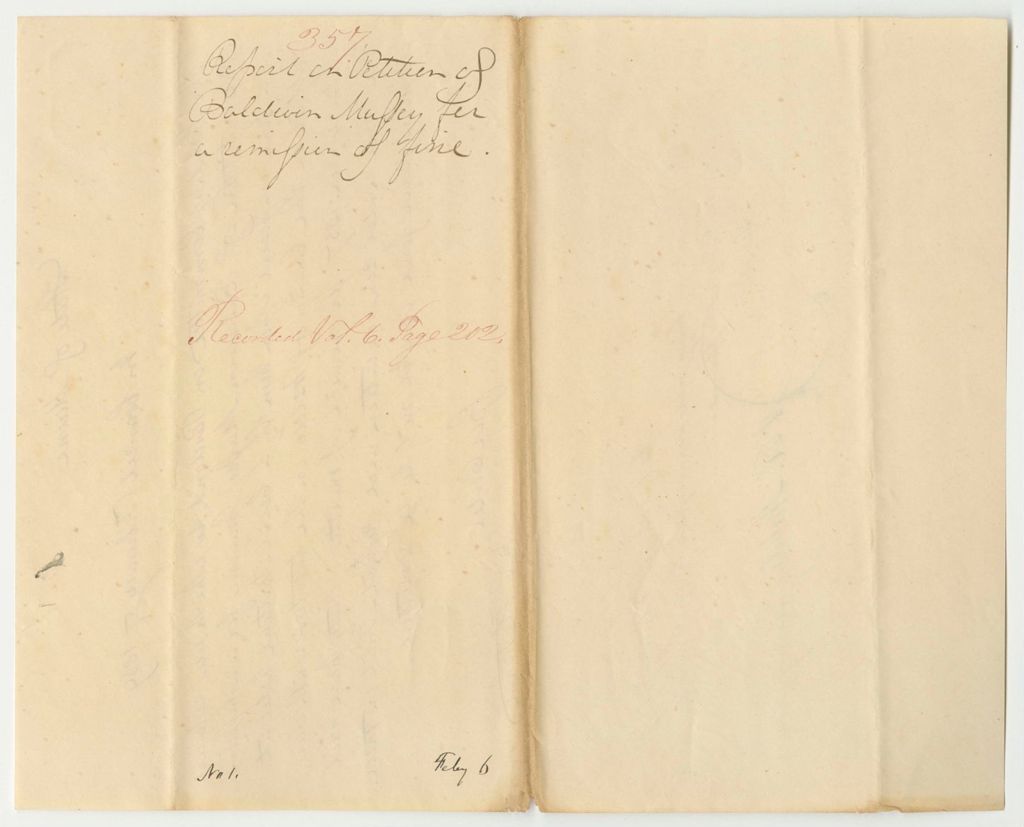 357
Report on Petition of
Baldwin Mussey for
a remission of fine.
Recorded Vol. 6. Page 202.
No 1.
Feby 6